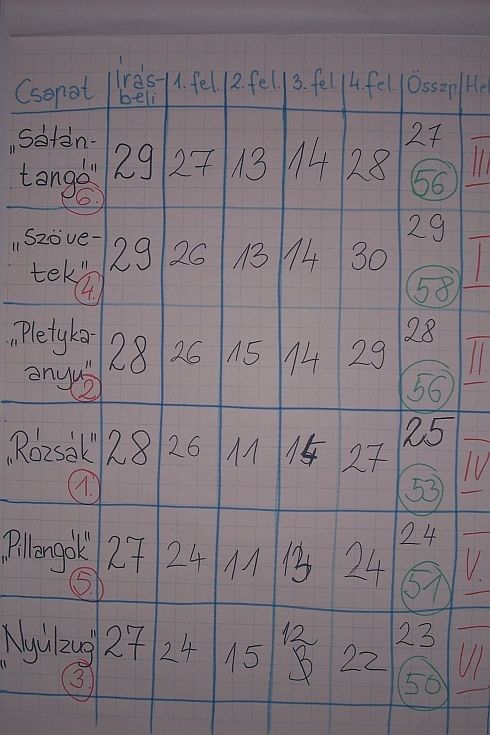 Csapat Írás-beli 1. fel. 2. fel. 3. fel. 4. fel. Összp. Hel
„Sátán-
tangó" 6. 29 27 13 14 28 27 56 III
„Szöve-
tek" 4. 29 26 13 14 30 29 58 I
„Pletyka-
anyu" 2 28 26 15 14 29 28 56 II
„Rózsák" 1. 28 26 11 27 25 53 IV
„Pillangók" 5. 27 24 11 24 24 51 V.
„Nyúlzug" 3. 27 24 15 12 22 23 50 VI